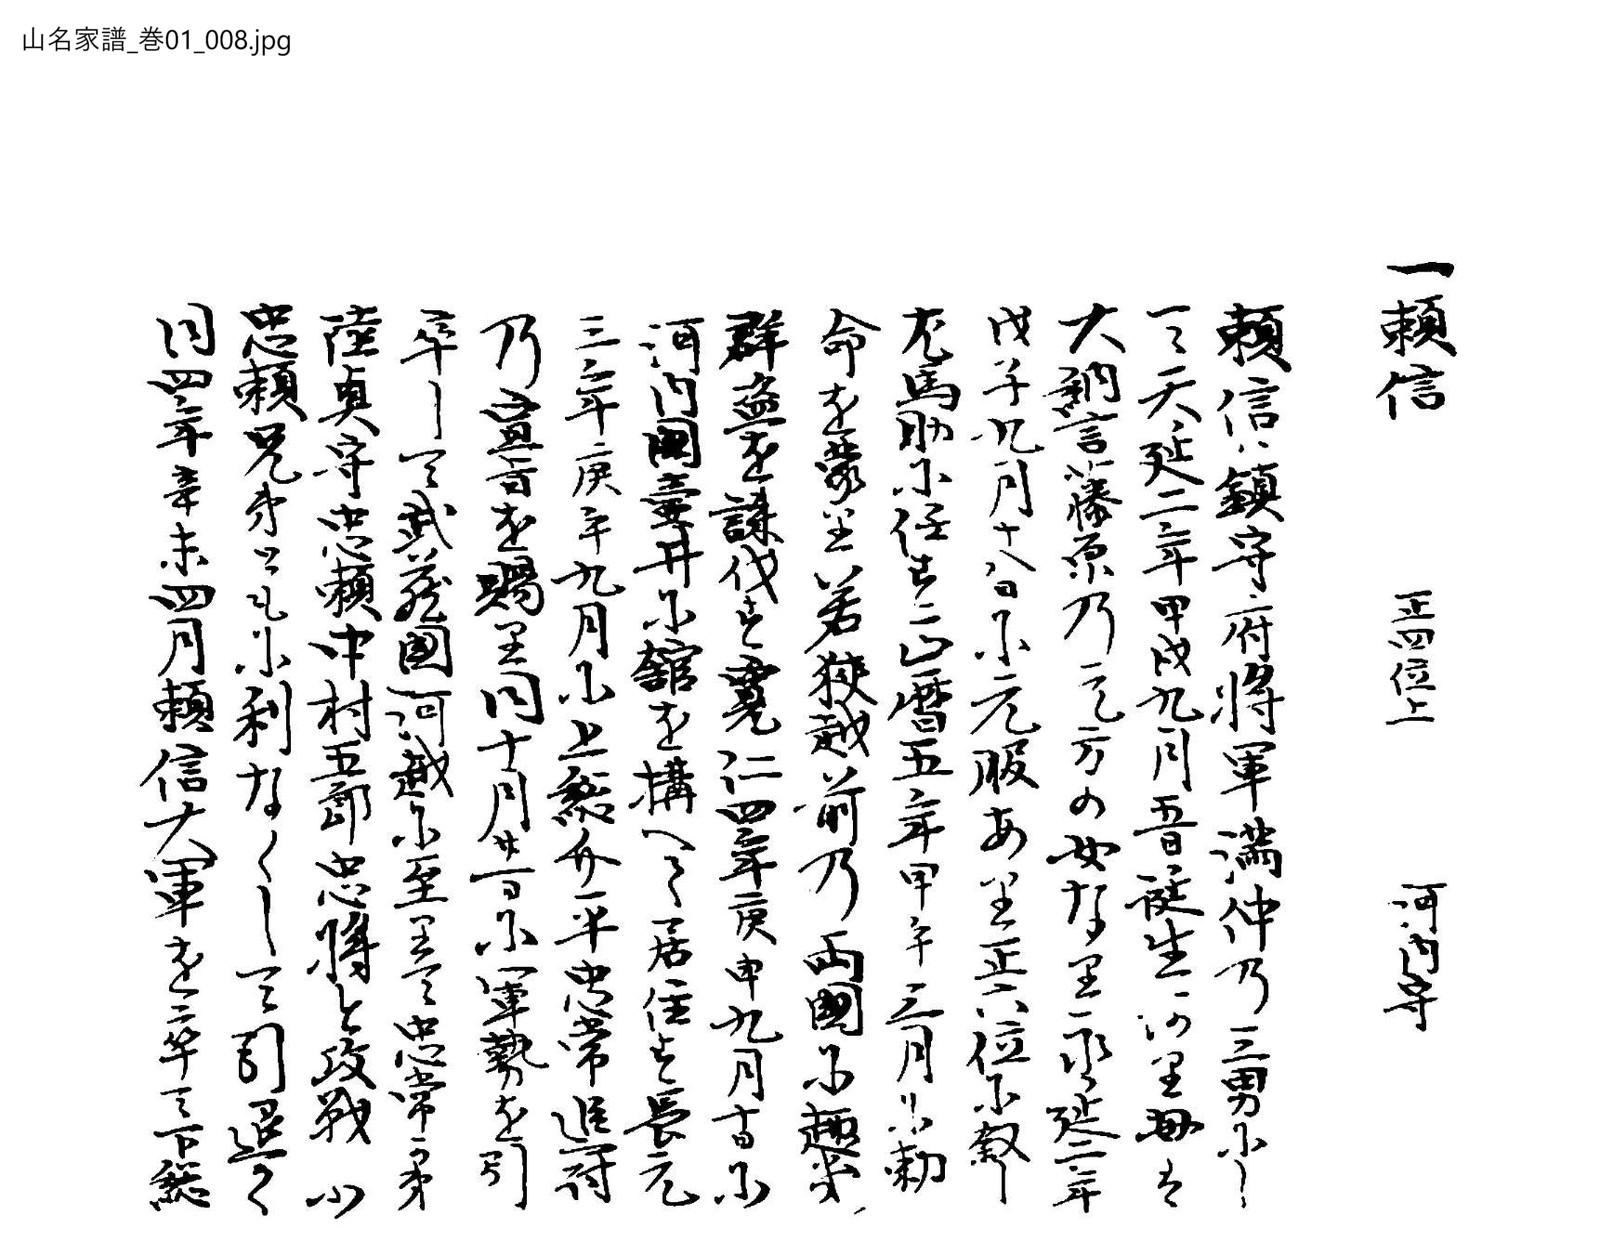 山名家譜_巻01_008.jpg
一頼信 正四位上 河内守
頼信ハ鎮守府将軍満仲乃三男にし
て天延二年甲戌九月五日誕生す母は
大納言藤原乃元方の女なり永延二年
戊子九月十八日に元服あり正六位に叙し
左馬助に任す正暦五年甲午三月に勅
命を蒙り若狭越前乃両國に趣
群盗を誅伐す寛仁四年庚申九月十日に
河内國壷井に舘を構へて居住す長元
三年庚午九月に上総介平忠常追討
乃宣旨を賜里同十月廿一日に軍勢を引
率して武蔵國河越に至里て忠常弟
陸奥守忠頼中村五郎忠将と攻戦ふ
忠頼兄弟ともに利なくして引退く
同四年辛未四月頼信大軍を率て下総